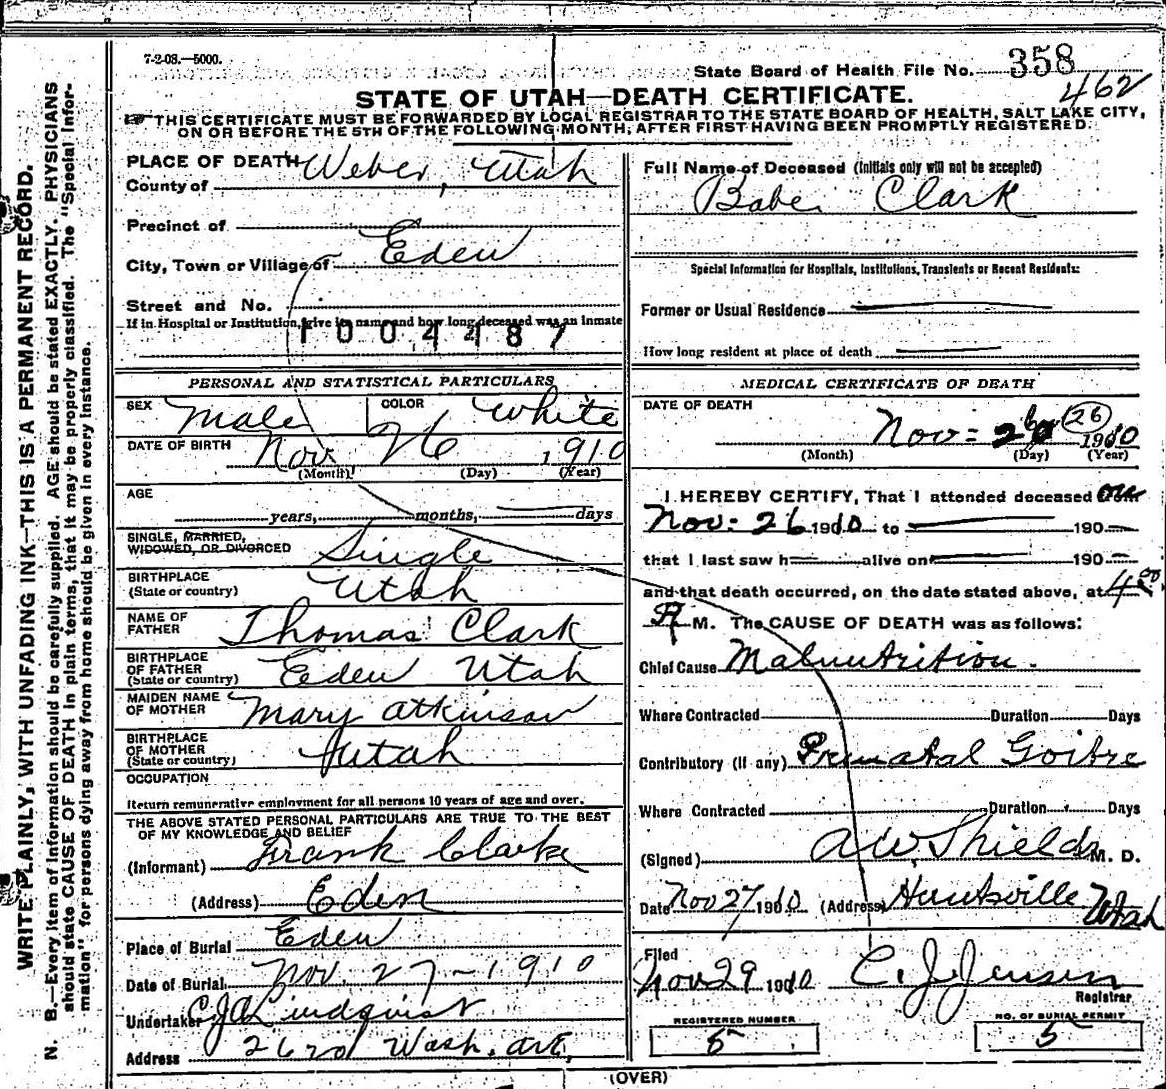 7-2-08.—5000.
State Board of Health File No. 358
462
STATE OF UTAH—DEATH CERTIFICATE.
THIS CERTIFICATE MUST BE FORWARDED BY LOCAL REGISTRAR TO THE STATE BOARD OF HEALTH, SALT LAKE CITY,
ON OR BEFORE THE 5TH OF THE FOLLOWING MONTH, AFTER FIRST HAVING BEEN PROMPTLY REGISTERED.
WRITE PLAINLY, WITH UNFADING INK—THIS IS A PERMANENT RECORD.
N. B.—Every item of information should be carefully supplied. AGE should be stated EXACTLY. PHYSICIANS
should state CAUSE OF DEATH in plain terms, that it may be properly classified. The "Special Infor-
mation" for persons dying away from home should be given in every instance.
PLACE OF DEATH
County of Weber, Utah
Precinct of
City, Town or Village of Eden
Street and No.
If in Hospital or Institution, give its name and how long deceased was an inmate
1004487
PERSONAL AND STATISTICAL PARTICULARS
SEX Male COLOR White
DATE OF BIRTH Nov 26 1910
(Month) (Day) (Year)
AGE
years, months, days
SINGLE, MARRIED,
WIDOWED, OR DIVORCED Single
BIRTHPLACE
(State or country) Utah
NAME OF
FATHER Thomas Clark
BIRTHPLACE
OF FATHER
(State or country) Eden Utah
MAIDEN NAME
OF MOTHER Mary Atkinson
BIRTHPLACE
OF MOTHER
(State or country) Utah
OCCUPATION
Return remunerative employment for all persons 10 years of age and over.
THE ABOVE STATED PERSONAL PARTICULARS ARE TRUE TO THE BEST
OF MY KNOWLEDGE AND BELIEF
(Informant) Frank Clarke
(Address) Eden
Place of Burial Eden
Date of Burial Nov. 27-1910
Undertaker C.J.A. Lindquist
Address 2620 Wash. Ave.
Full Name of Deceased (Initials only will not be accepted)
Babe Clark
Special Information for Hospitals, Institutions, Transients or Recent Residents:
Former or Usual Residence
How long resident at place of death
MEDICAL CERTIFICATE OF DEATH
DATE OF DEATH
Nov = 26 (26) 1910
(Month) (Day) (Year)
I HEREBY CERTIFY, That I attended deceased on
Nov- 26 1910 to 190
that I last saw h alive on 190
and that death occurred, on the date stated above, at 4.00
A M. The CAUSE OF DEATH was as follows:
Chief Cause Malnutrition.
Where Contracted Duration Days
Contributory (If any) Prenatal Goitre
Where Contracted Duration Days
(Signed) A W. Shields M. D.
Date Nov 27 1910 (Address) Huntsville Utah
Filed
Nov 29 1910 C. J. Jensen
Registrar
REGISTERED NUMBER
5
NO. OF BURIAL PERMIT
5
(OVER)